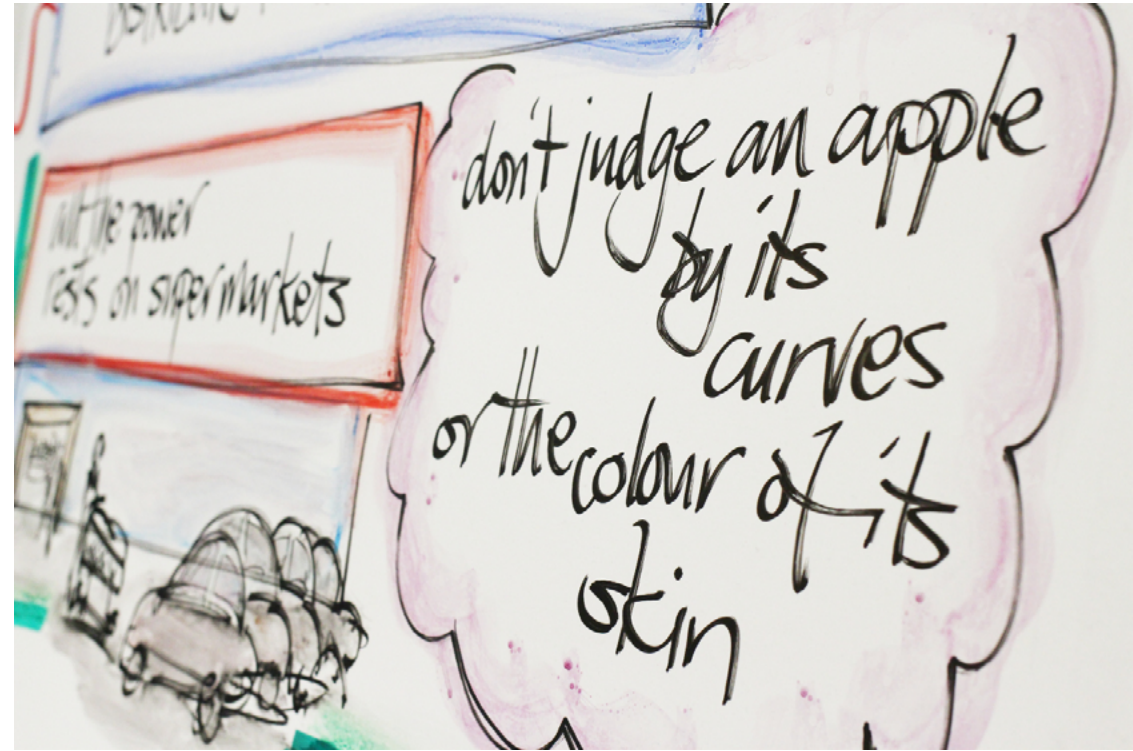 the power
rests on supermarkets
don't judge an apple
by its
curves
or the colour of its
skin